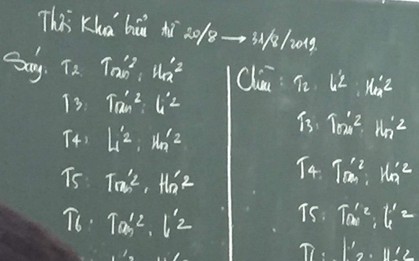 Thời Khoá biểu từ 20/8 → 31/8/2019
Sáng: T2: Toán², Hoá²
T3: Toán², Lí²
T4: Lí², Hoá²
T5: Toán², Hoá²
T6: Toán², Lí²
Chiều: T2: Lí², Hoá²
T3: Toán², Hoá²
T4: Toán², Hoá²
T5: Toán², Lí²